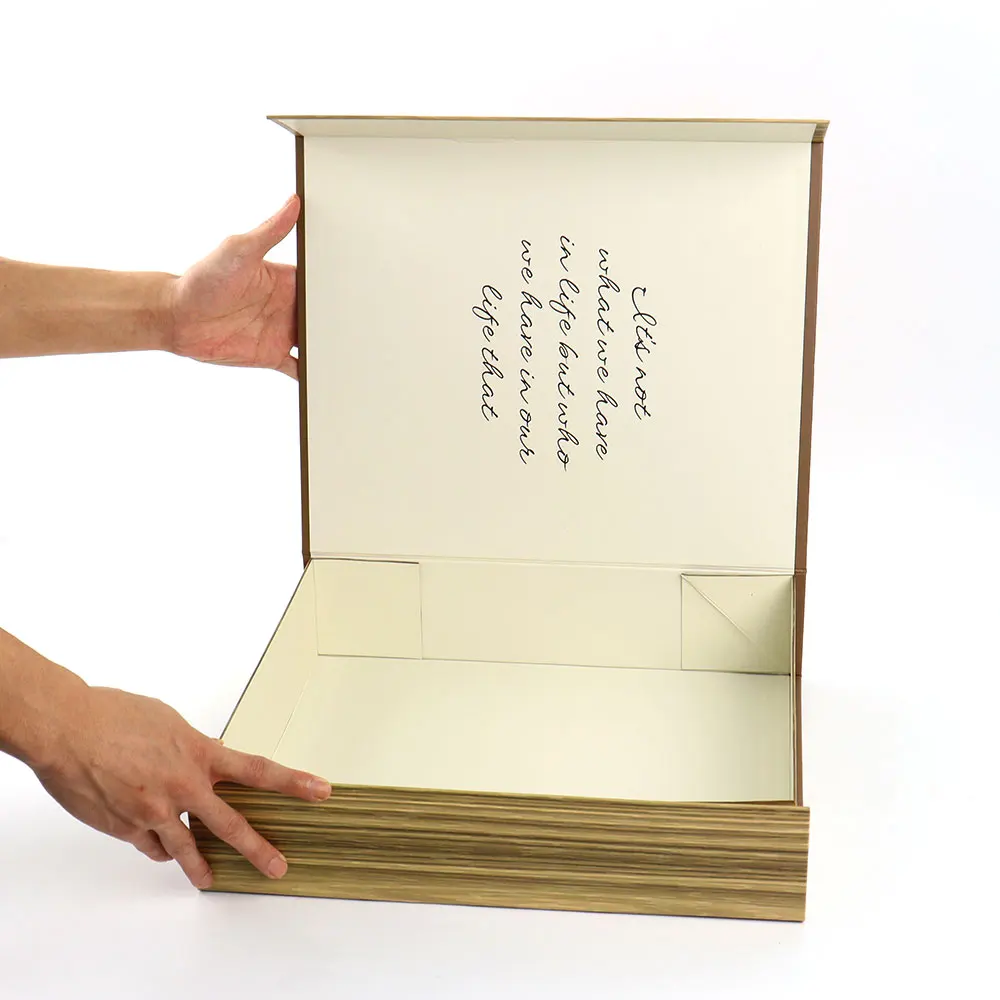 It's not
what we have
in life but who
we have in our
life that